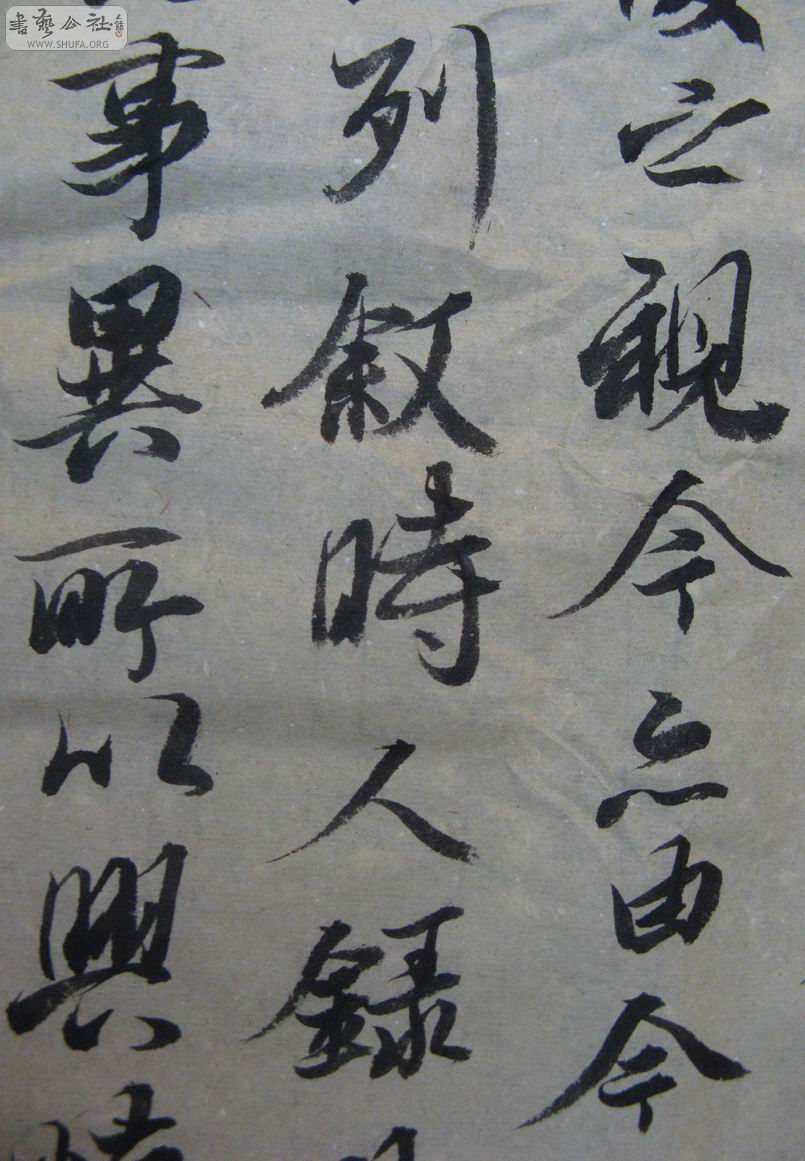 之視今亦由今
列敘時人錄
事異所以興
書藝公社
WWW.SHUFA.ORG